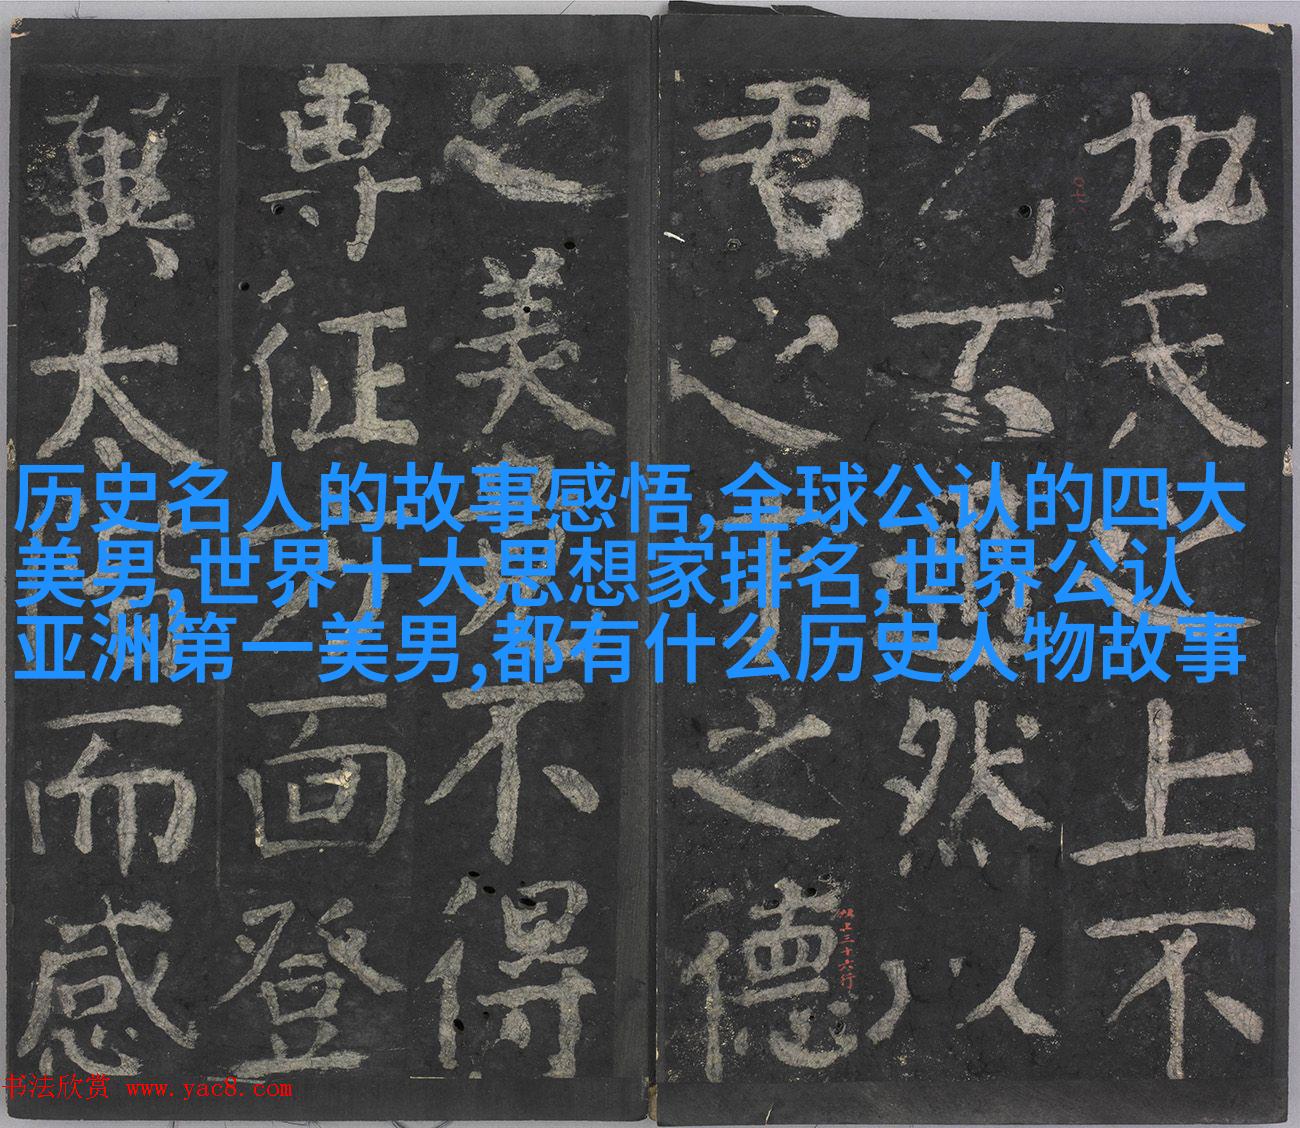 天之上不
不然以
君之之德
之美不得
專征方面登
太階而感
历史名人的故事感悟,全球公认的四大
美男,世界十大思想家排名,世界公认
亚洲第一美男,都有什么历史人物故事
帖上三十六行
书法欣赏 www.yac8.com